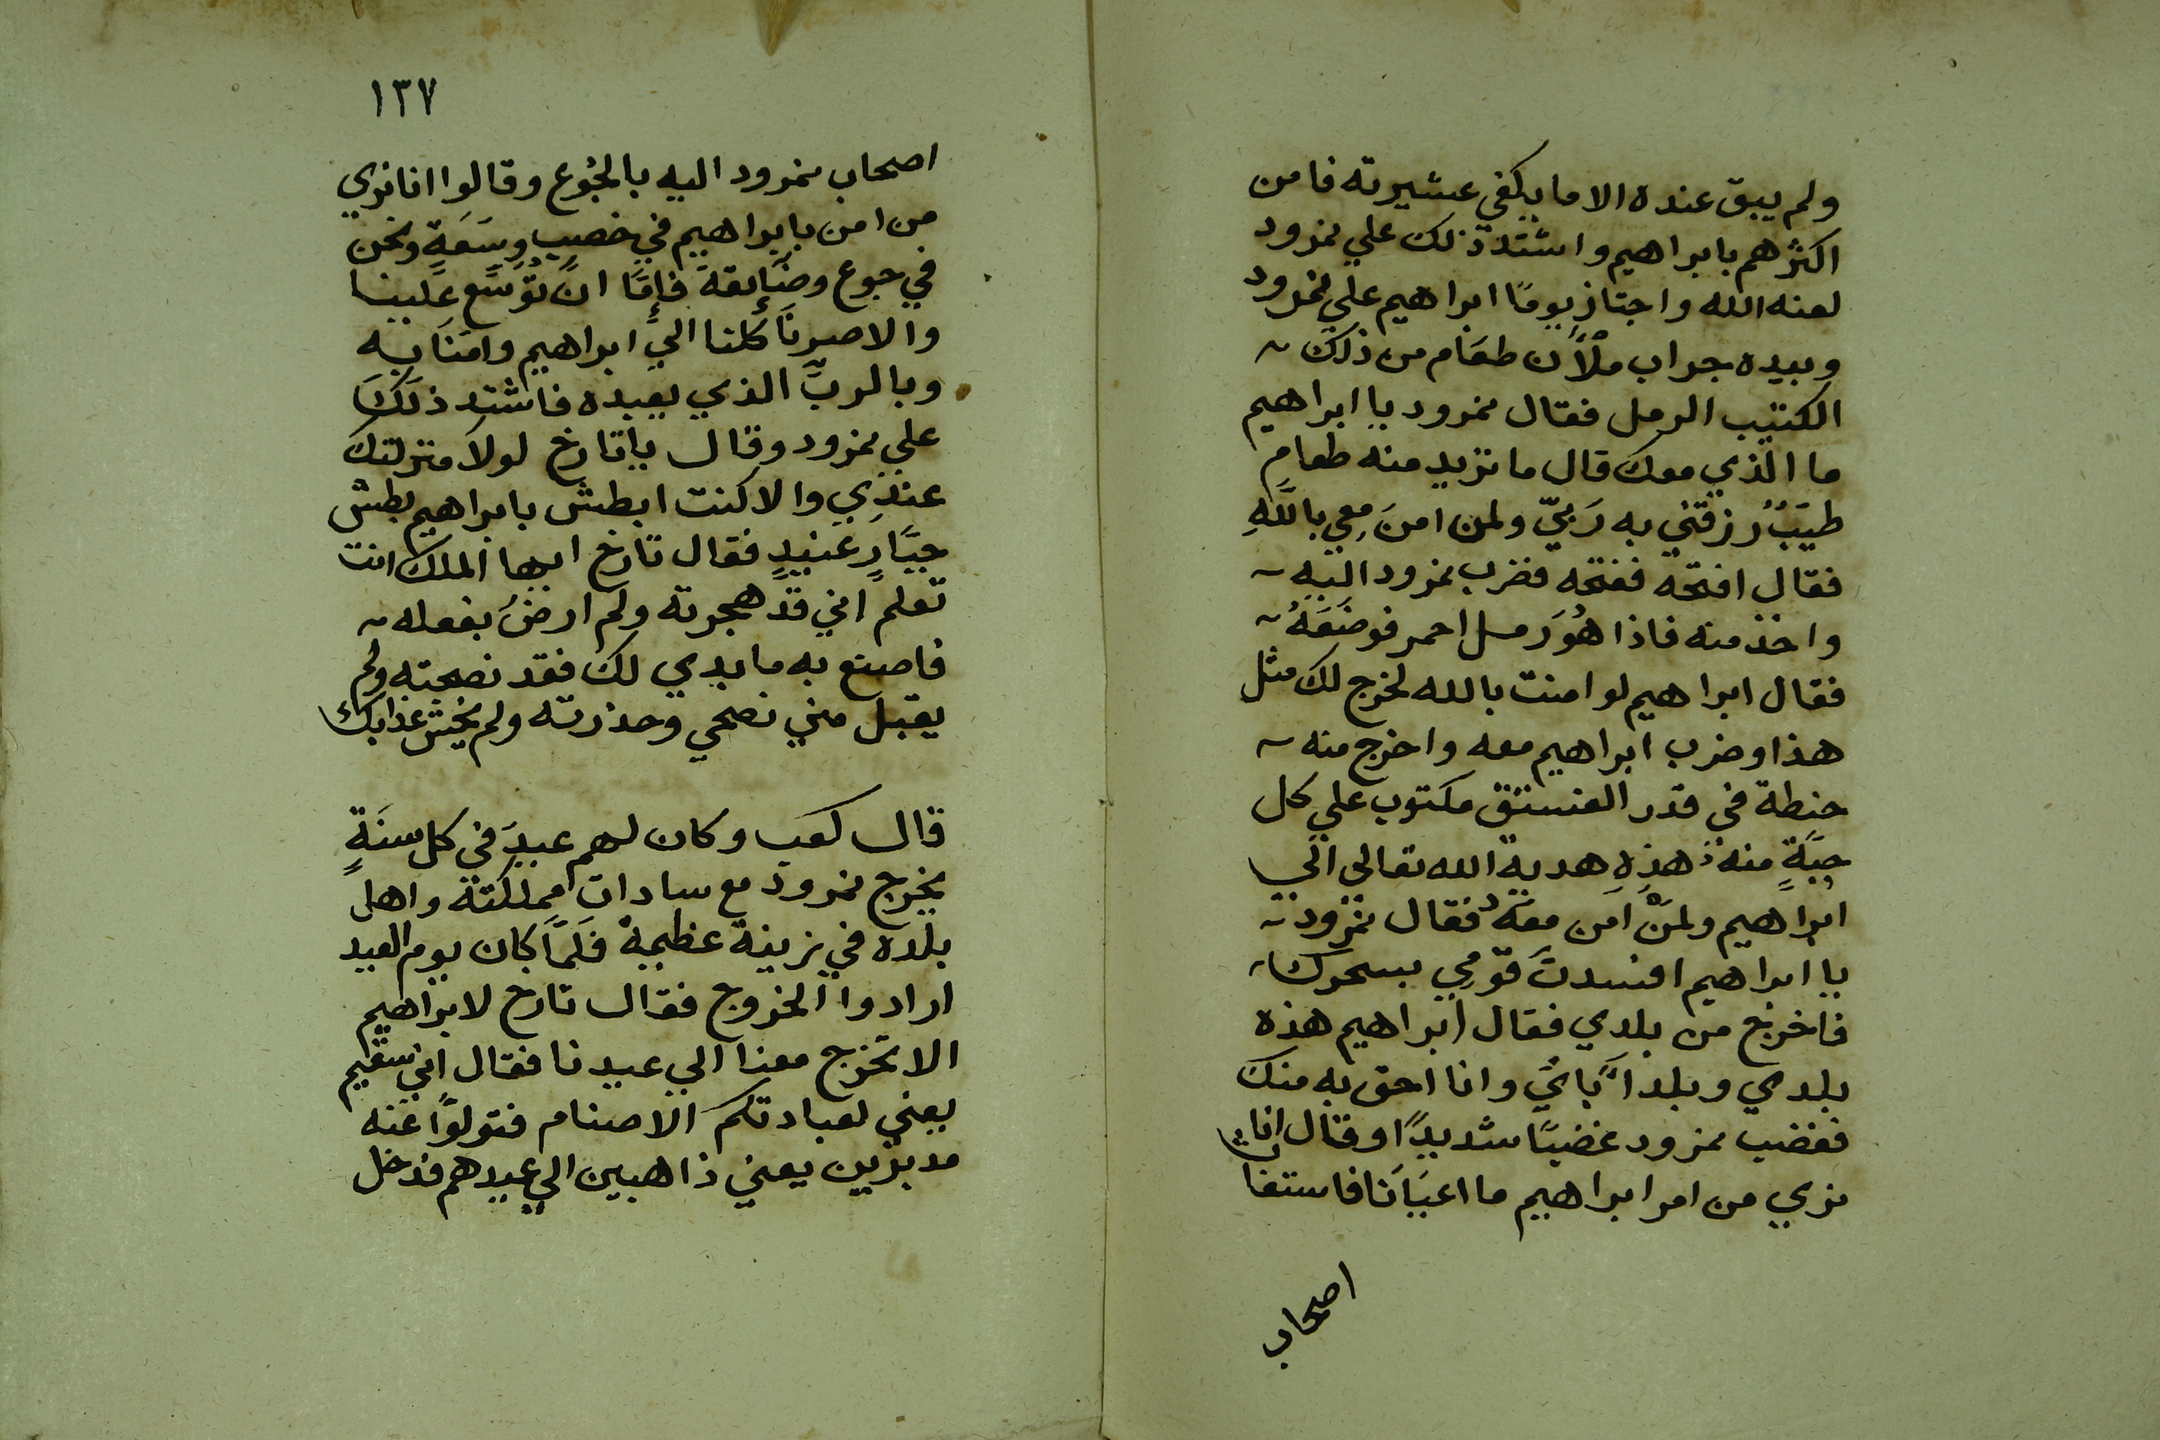 ولم يبق عنده الا ما يكفي عشيرته فامن
اكثرهم بابراهيم واشتد ذلك علي نمرود
لعنه الله واجتاز يومًا ابراهيم علي نمرود
وبيده جراب ملأن طعَام من ذلك
الكتيب الرمل فقال نمرود يا ابراهيم
ما الذي معك قال ما تريد منه طعام
طيَبٌ رزقني به رَبيّ ولمن امنَ معِي باللَّهِ
فقال افتحه ففتحه فضرب نمرود اليه
واخذ منه فاذا هُوَ رمل احمر فوضَعَهُ
فقال ابراهيم لو امنت بالله لخرج لك مثل
هذا وضرب ابراهيم معه واخرج منه
حنطة في قدر الفستق مكتوب علي كل
حبَةٍ منه هذِهِ هدية الله تعالي الي
ابراهيم ولمَنْ امَن معَهُ فقال نمرُود
يا ابراهيم افسدتَ قوَمِي بسحرك
فاخرج من بلدي فقال ابراهيم هذه
بلدي وبلد اَبائي وانا احق به منك
فغضب نمرود غضبًا شديدًا وقال انا
نري من امر ابراهيم ما اعيَانَا فاستغا
اصحاب
١٣٧
اصحاب نمرود اليه بالجُوع وقالوا انا نري
من امن بابراهيم في خصبٍ وسَعَةٍ ونحن
في جوع وضَايقة فإِمَّا انْ توَسَّع عَلينا
والا صرنَا كلنا الي ابراهيم وامَنَا به
وبالربِّ الذي يعبده فاشتد ذلَكَ
علي نمرود وقال ياتارخ لولا منزلتك
عنِدِي والا كنت ابطش بابراهيم بطش
جبَّارٍ عنيدٍ فقال تارخ ايها الملك انت
تعلم اني قد هجرته ولم ارضَ بفعله
فاصنع به ما بدي لك فقد نصحته ولم
يقبل مني نصحي وحذرته ولم يخش عذابك
قال كعب وكان لهم عيدَ في كل سنَةٍ
يخرج نمرود مع سادات مملكته واهل
بلده في زينة عظيمة فَلمَّا كان يوم العيد
ارادوا الخروج فقال تارح لابراهيم
الا تخرج معنا الي عيدنا فقال اني سقيم
يعني لعبادتكم الاصنام فتولوا عنه
مدبرين يعني ذاهبين الي عيدهم فدخل